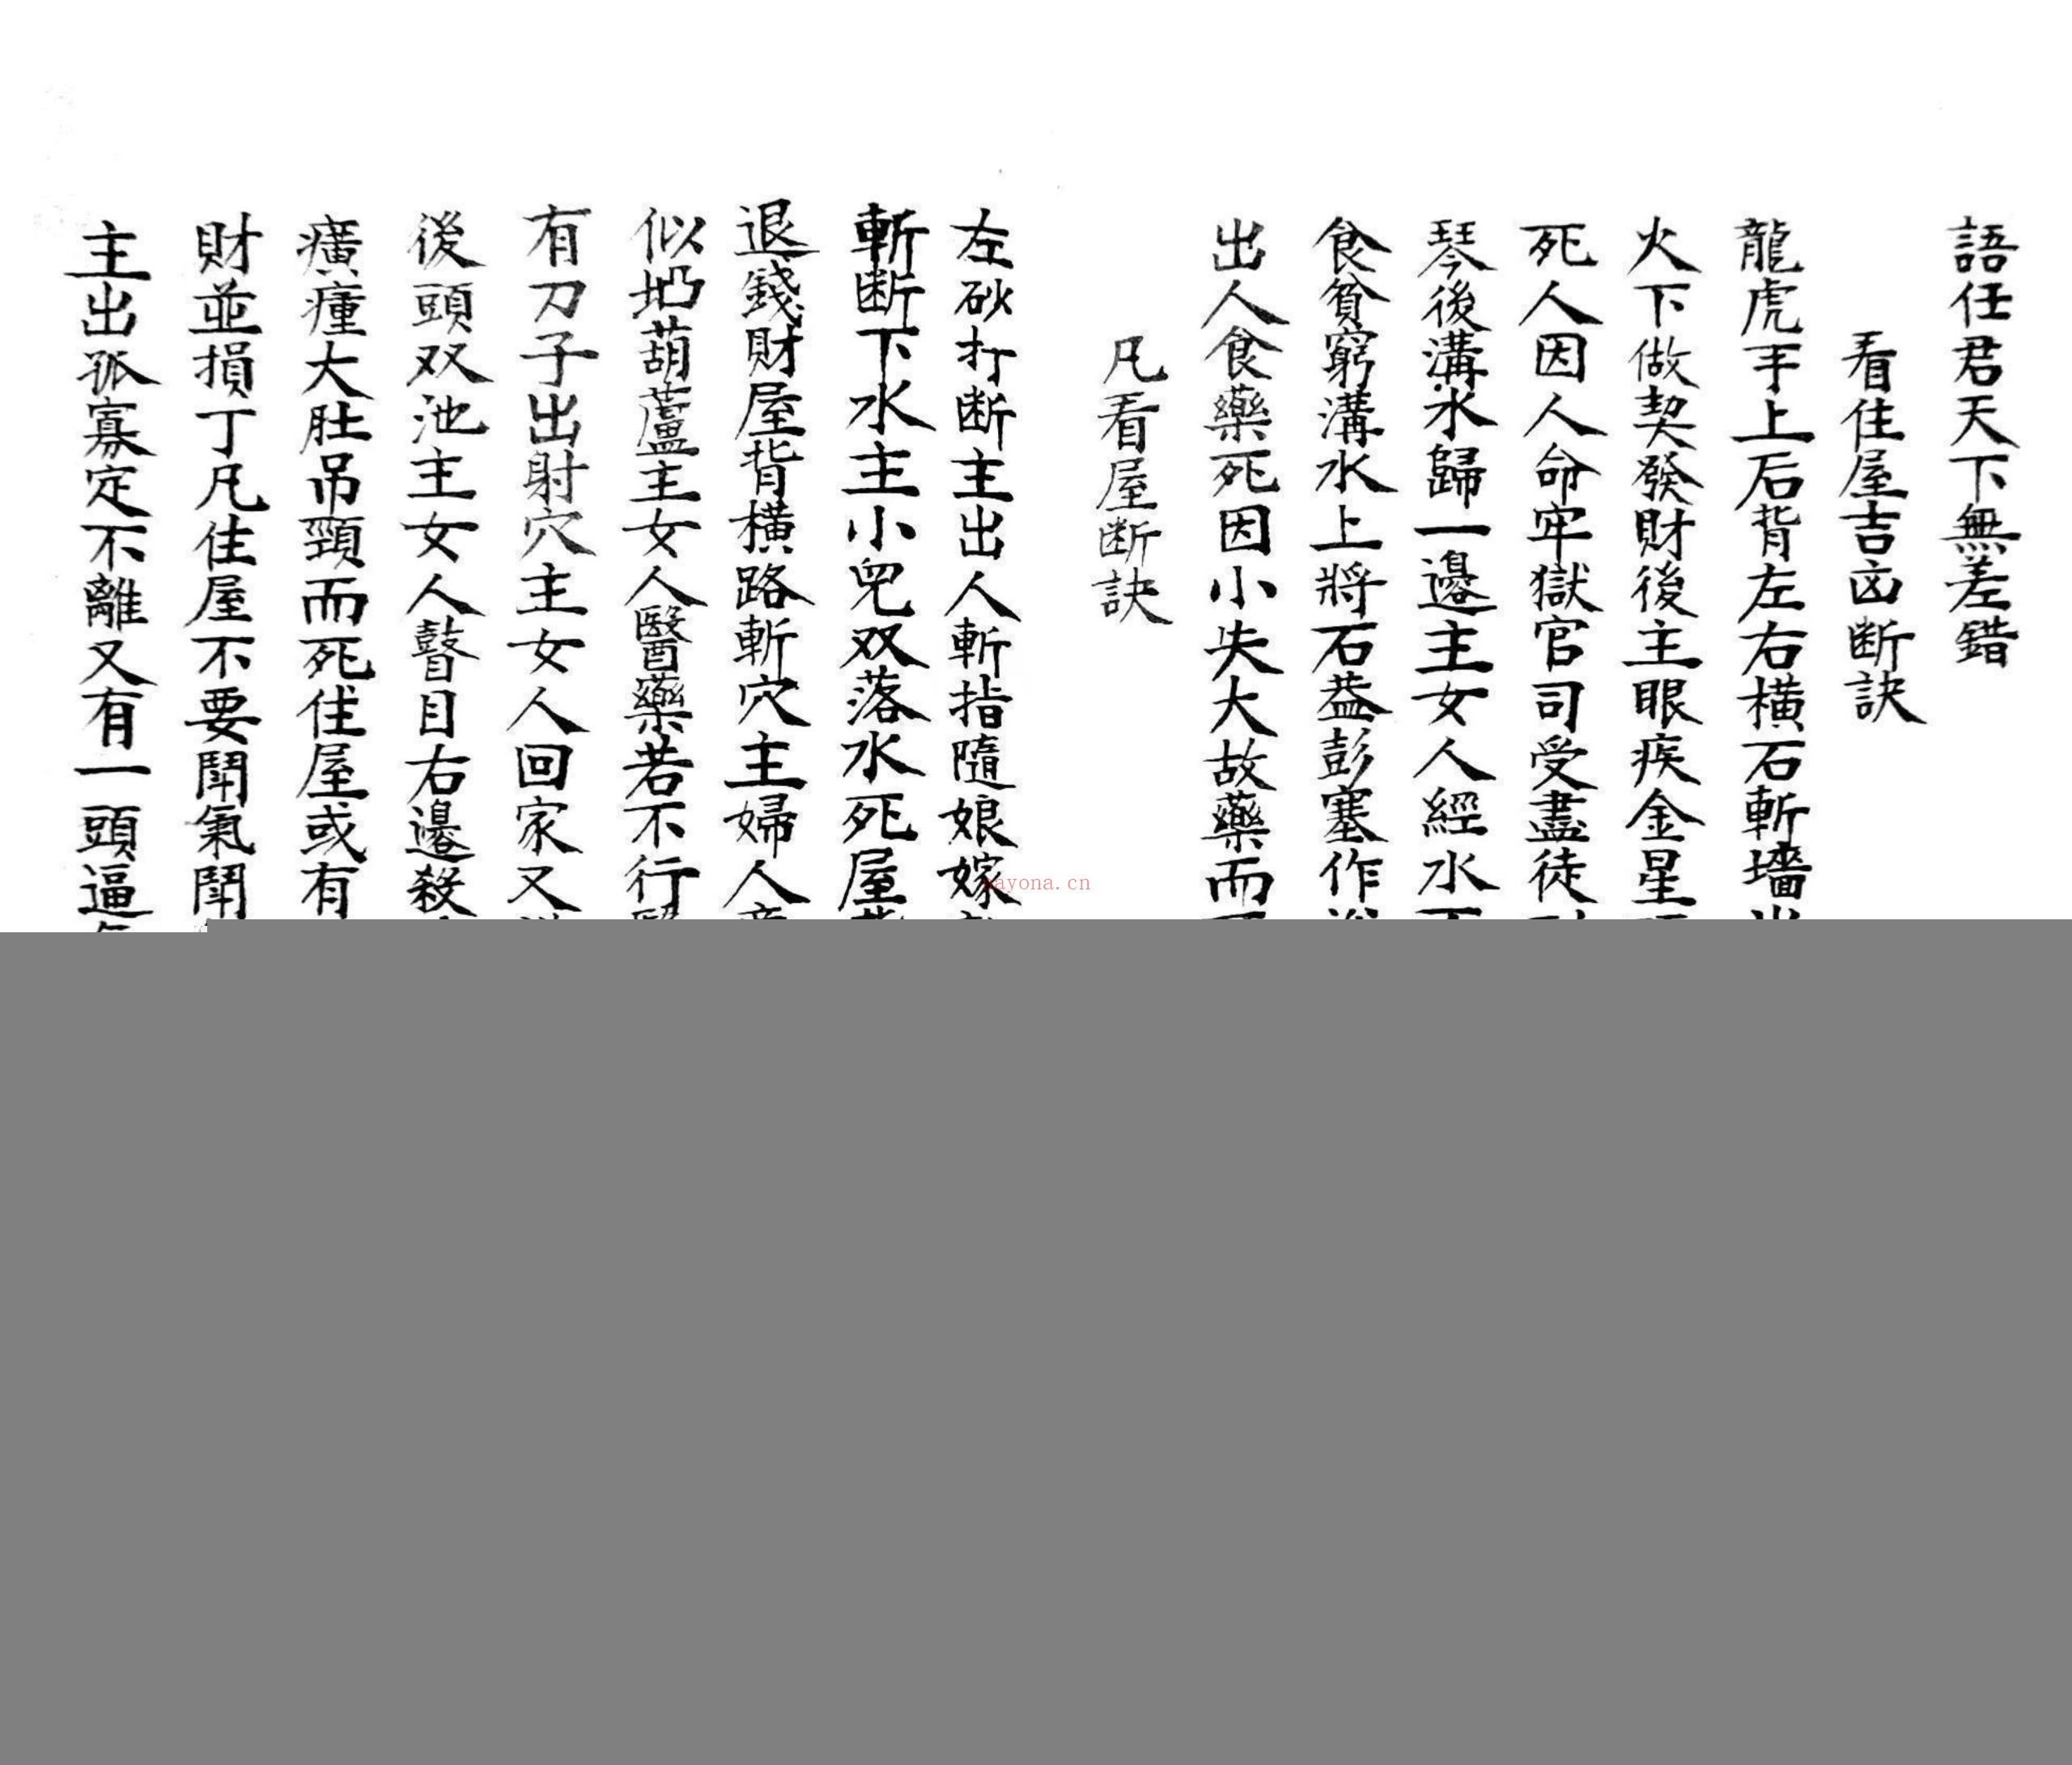 語任君天下無差錯
看住屋吉凶断訣
龍虎手上后背左右橫石斬墻
火下做契發財後主眼疾金星
死人因人命牢獄官司受盡徒
琴後溝水歸一邊主女人經水
食貧窮溝水上將石葢彭塞作
出人食藥死因小失大故藥而
凡看屋断訣
左砂打断主出人斬指隨娘嫁
斬断下水主小兒双落水死屋
退錢財屋背橫路斬穴主婦人
似葫蘆主女人醫藥若不行
有刀子出射穴主女人回家又
後頭双池主女人瞽目右邊殺
癀瘇大肚吊頸而死住屋或有
財並損丁凡住屋不要鬧氣鬧
主出孤寡定不離又有一頭逼
ayona.cn